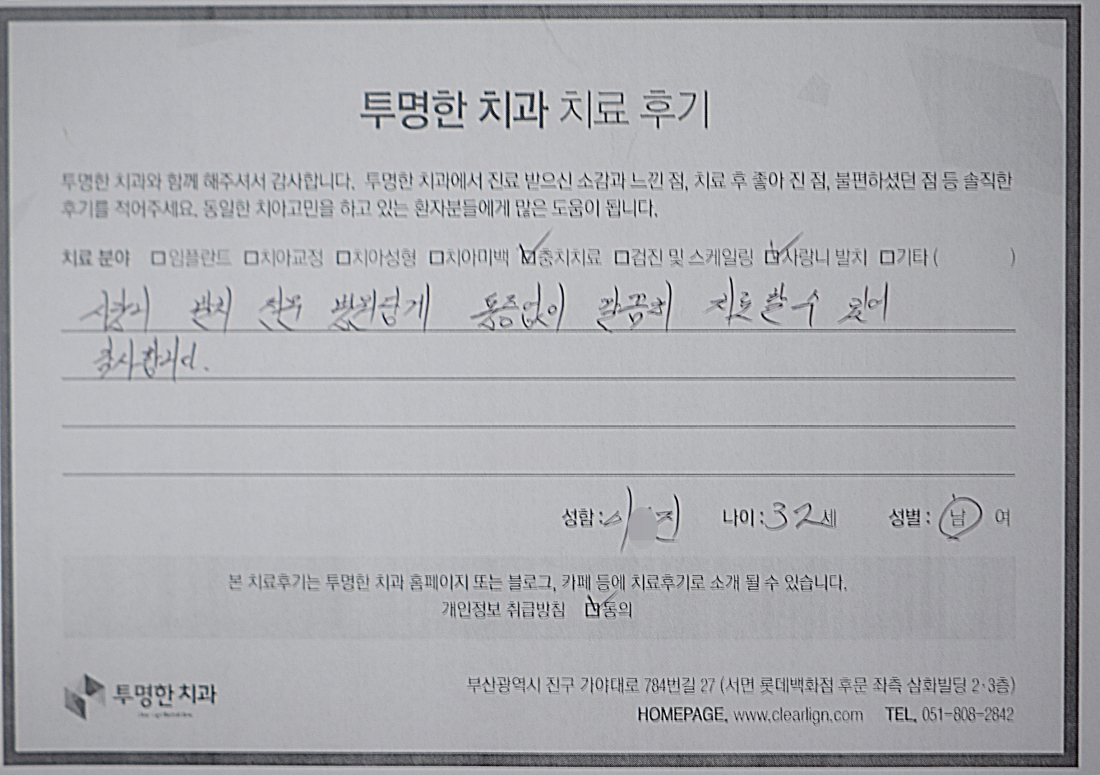 투명한 치과 치료 후기
투명한 치과와 함께 해주셔서 감사합니다. 투명한 치과에서 진료 받으신 소감과 느낀 점, 치료 후 좋아 진 점, 불편하셨던 점 등 솔직한
후기를 적어주세요. 동일한 치아고민을 하고 있는 환자분들에게 많은 도움이 됩니다.
치료 분야 □임플란트 □치아교정 □치아성형 □치아미백 ☑충치치료 □검진 및 스케일링 ☑사랑니 발치 □기타 ( )
사랑니 발치 전부 통증없이 깔끔히 치료할 수 있어
감사합니다.
성함: 나이: 32세 성별: 남 여
본 치료후기는 투명한 치과 홈페이지 또는 블로그, 카페 등에 치료후기로 소개 될 수 있습니다.
개인정보 취급방침 ☑동의
투명한 치과
부산광역시 진구 가야대로 784번길 27 (서면 롯데백화점 후문 좌측 삼화빌딩 2·3층)
HOMEPAGE. www.clearlign.com TEL. 051-808-2842